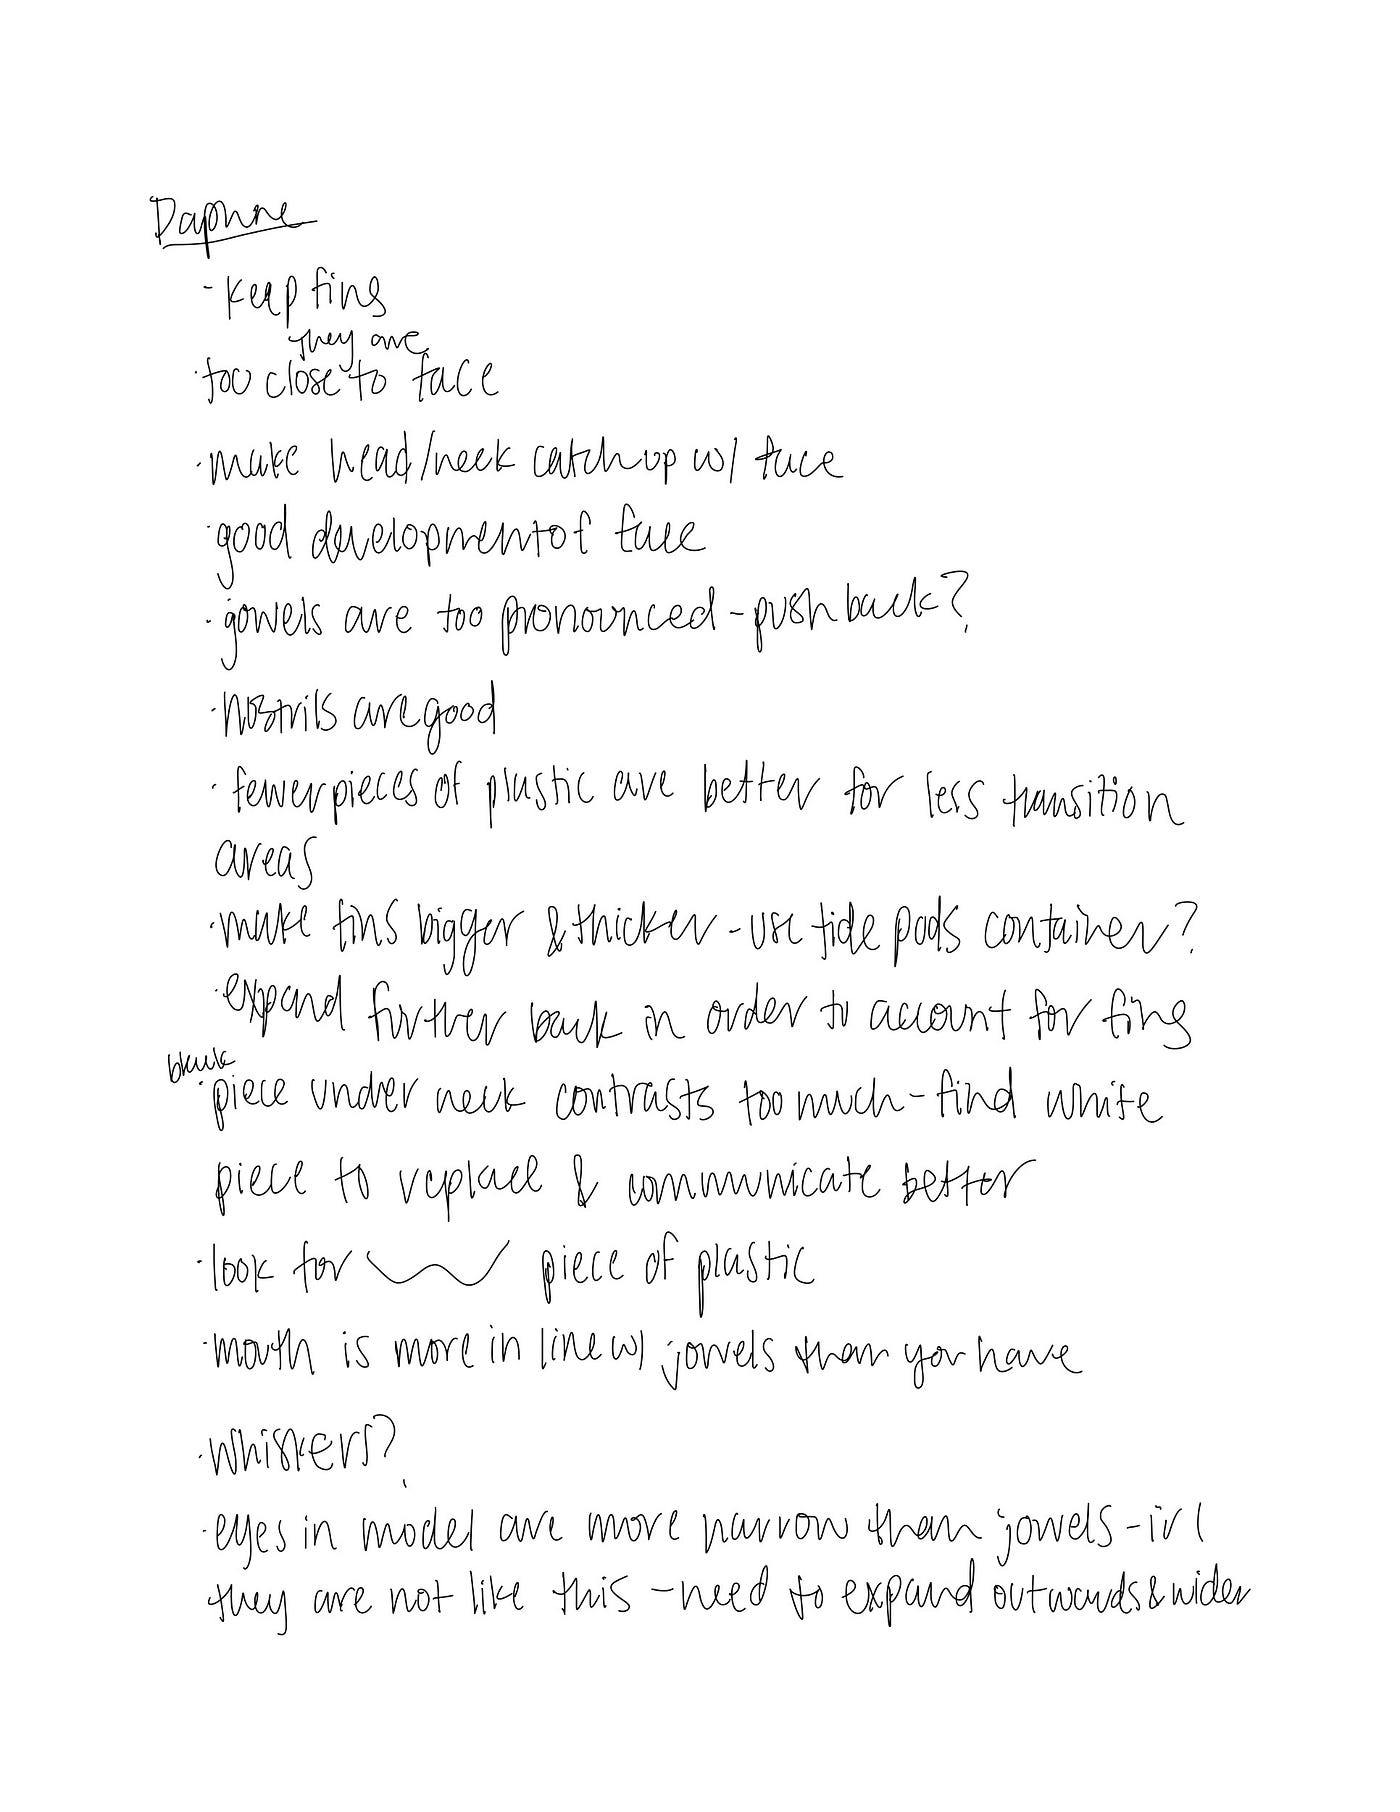 Daphne
- keep fins
they are
· too close to face
· make head/neck catch up w/ face
· good development of face
· jowels are too pronounced - push back?
· nostrils are good
· fewer pieces of plastic are better for less transition
areas
· make fins bigger & thicker - use tide pods container?
· expand further back in order to account for fins
black
· piece under neck contrasts too much - find white
piece to replace & communicate better
· look for piece of plastic
· mouth is more in line w/ jowels than you have
· whiskers?
· eyes in model are more narrow than jowels - irl
they are not like this - need to expand outwards & wider